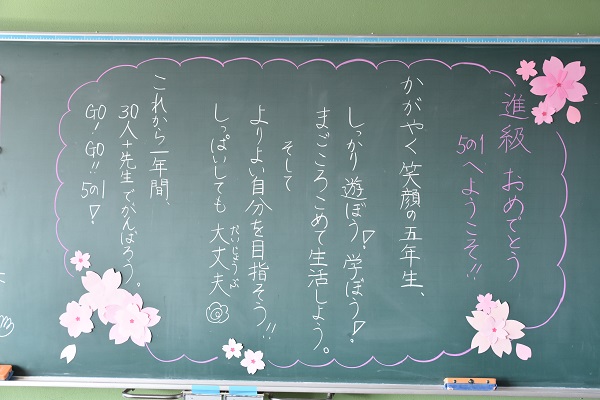 進級 おめでとう
5の1へようこそ!!
かがやく笑顔の五年生、
しっかり 遊ぼう! 学ぼう!
まごころこめて生活しよう。
そして
よりよい自分を目指そう!!
しっぱいしても 大丈夫
だいじょうぶ
これから一年間、
30人+先生でがんばろう。
GO! GO!! 5の1!